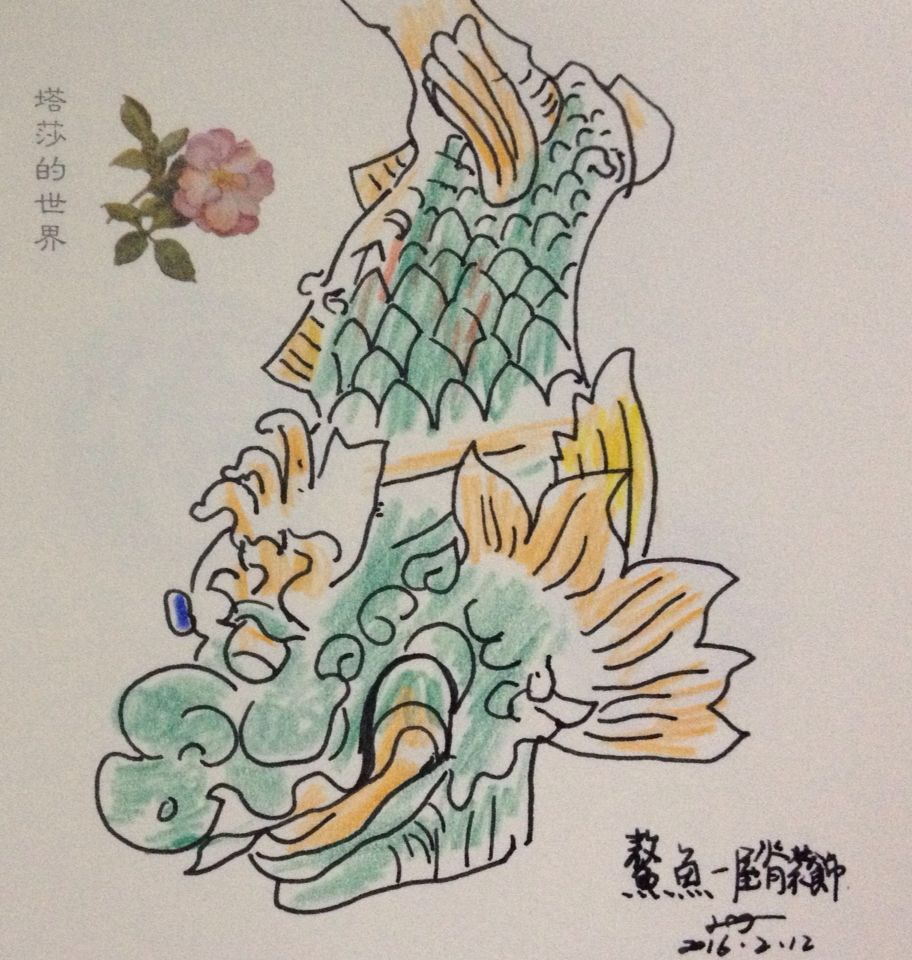 塔莎的世界
鰲魚－屋脊装飾
2016.2.12